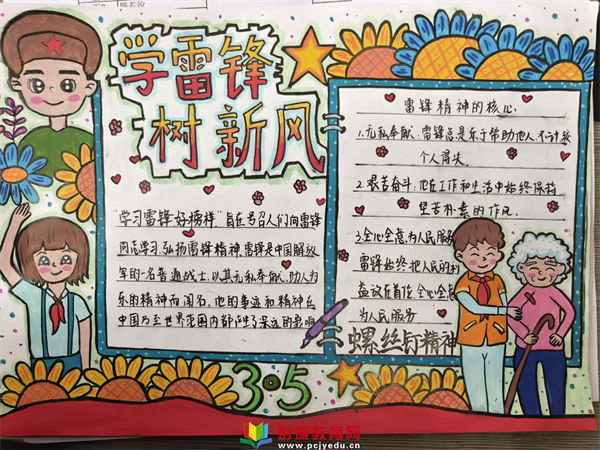 学雷锋
树新风
"学习雷锋好榜样"旨在号召人们向雷锋
同志学习,弘扬雷锋精神,雷锋是中国解放
军的一名普通战士,以其无私奉献、助人为
乐的精神而闻名,他的事迹和精神在
中国乃至世界范围内都产生了深远的影响
雷锋精神的核心
1.无私奉献:雷锋总是乐于帮助他人,不计较
个人得失
2.艰苦奋斗:他在工作和生活中始终保持
坚苦朴素的作风.
3.全心全意为人民服务
雷锋始终把人民的利
益放在首位,全心全意
为人民服务
螺丝钉精神
3·5
彭城教育网
www.pcjyedu.cn